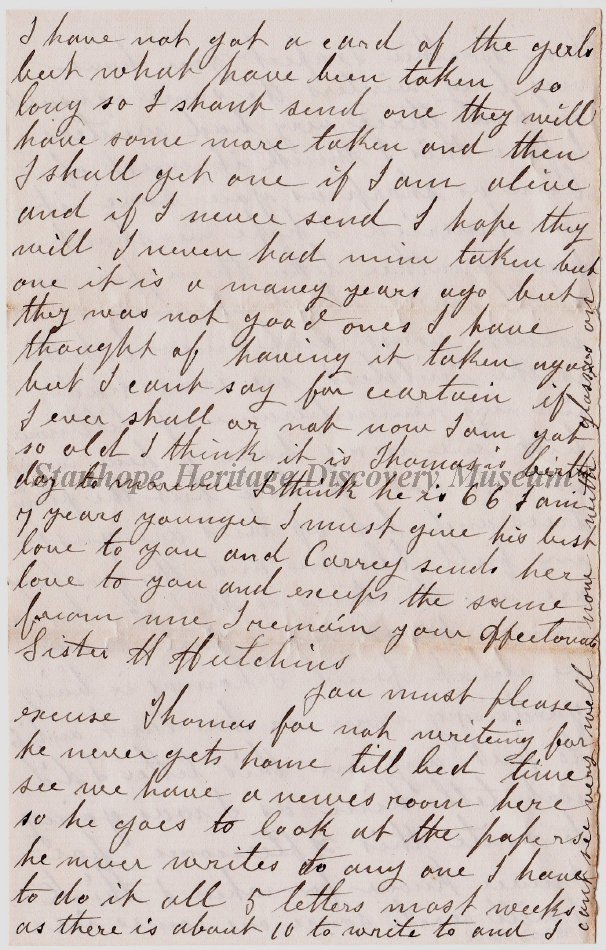 I have not got a card of the gerls
but what have been taken so
long so I shant send one they will
have some more taken and then
I shall get one if I am alive
and if I never send I hope they
will I never had mine taken but
one it is a maney years ago but
they was not good ones I have
thought of having it taken again
but I cant say for ceartain if
I ever shall or not now I am got
so old I think it is Thomas is birth
day to morrow I think he is 66 I am
7 years younger I must give his best
love to you and Carrey sends her
love to you and except the same
from me I remain your affectonate
Sister H Hutchins
you must please
excuse Thomas for not writeing for
he never gets home till bed time
see we have a newes room here
so he goes to look at the papers
he never writes to any one I have
to do it all 5 letters most weeks
as there is about 10 to write to and I
cant see very well none with glasses on
Stanhope Heritage Discovery Museum